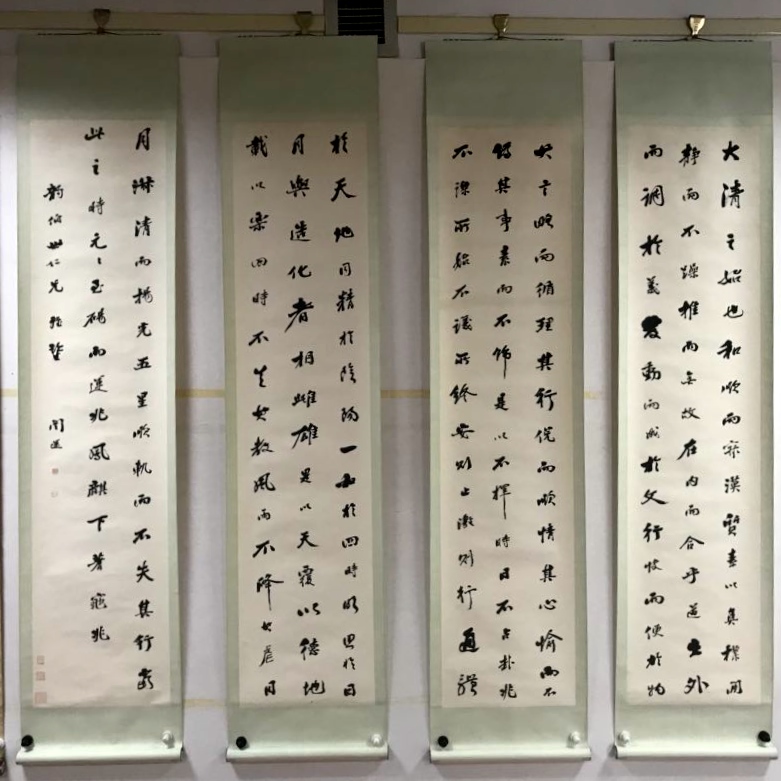 大清之始也和順而寂漠質直以真樸閒
靜而不躁推而無故在內而合乎道出外
而調於義發動而成於文行快而便於物
其言略而循理其行侻而順情其心愉而不
偽其事素而不飾是以不擇時日不占卦兆
不謀所始不議所終安則止激則行通體
於天地同精於陰陽一和於四時明照於日
月與造化者相雌雄是以天覆以德地
載以樂四時不失其敘風雨不降其虐日
月淑清而揚光五星順軌而不失其行當
此之時元々至碭而運兆鳳麟下蓍龜兆
韵伯世仁兄雅鑒